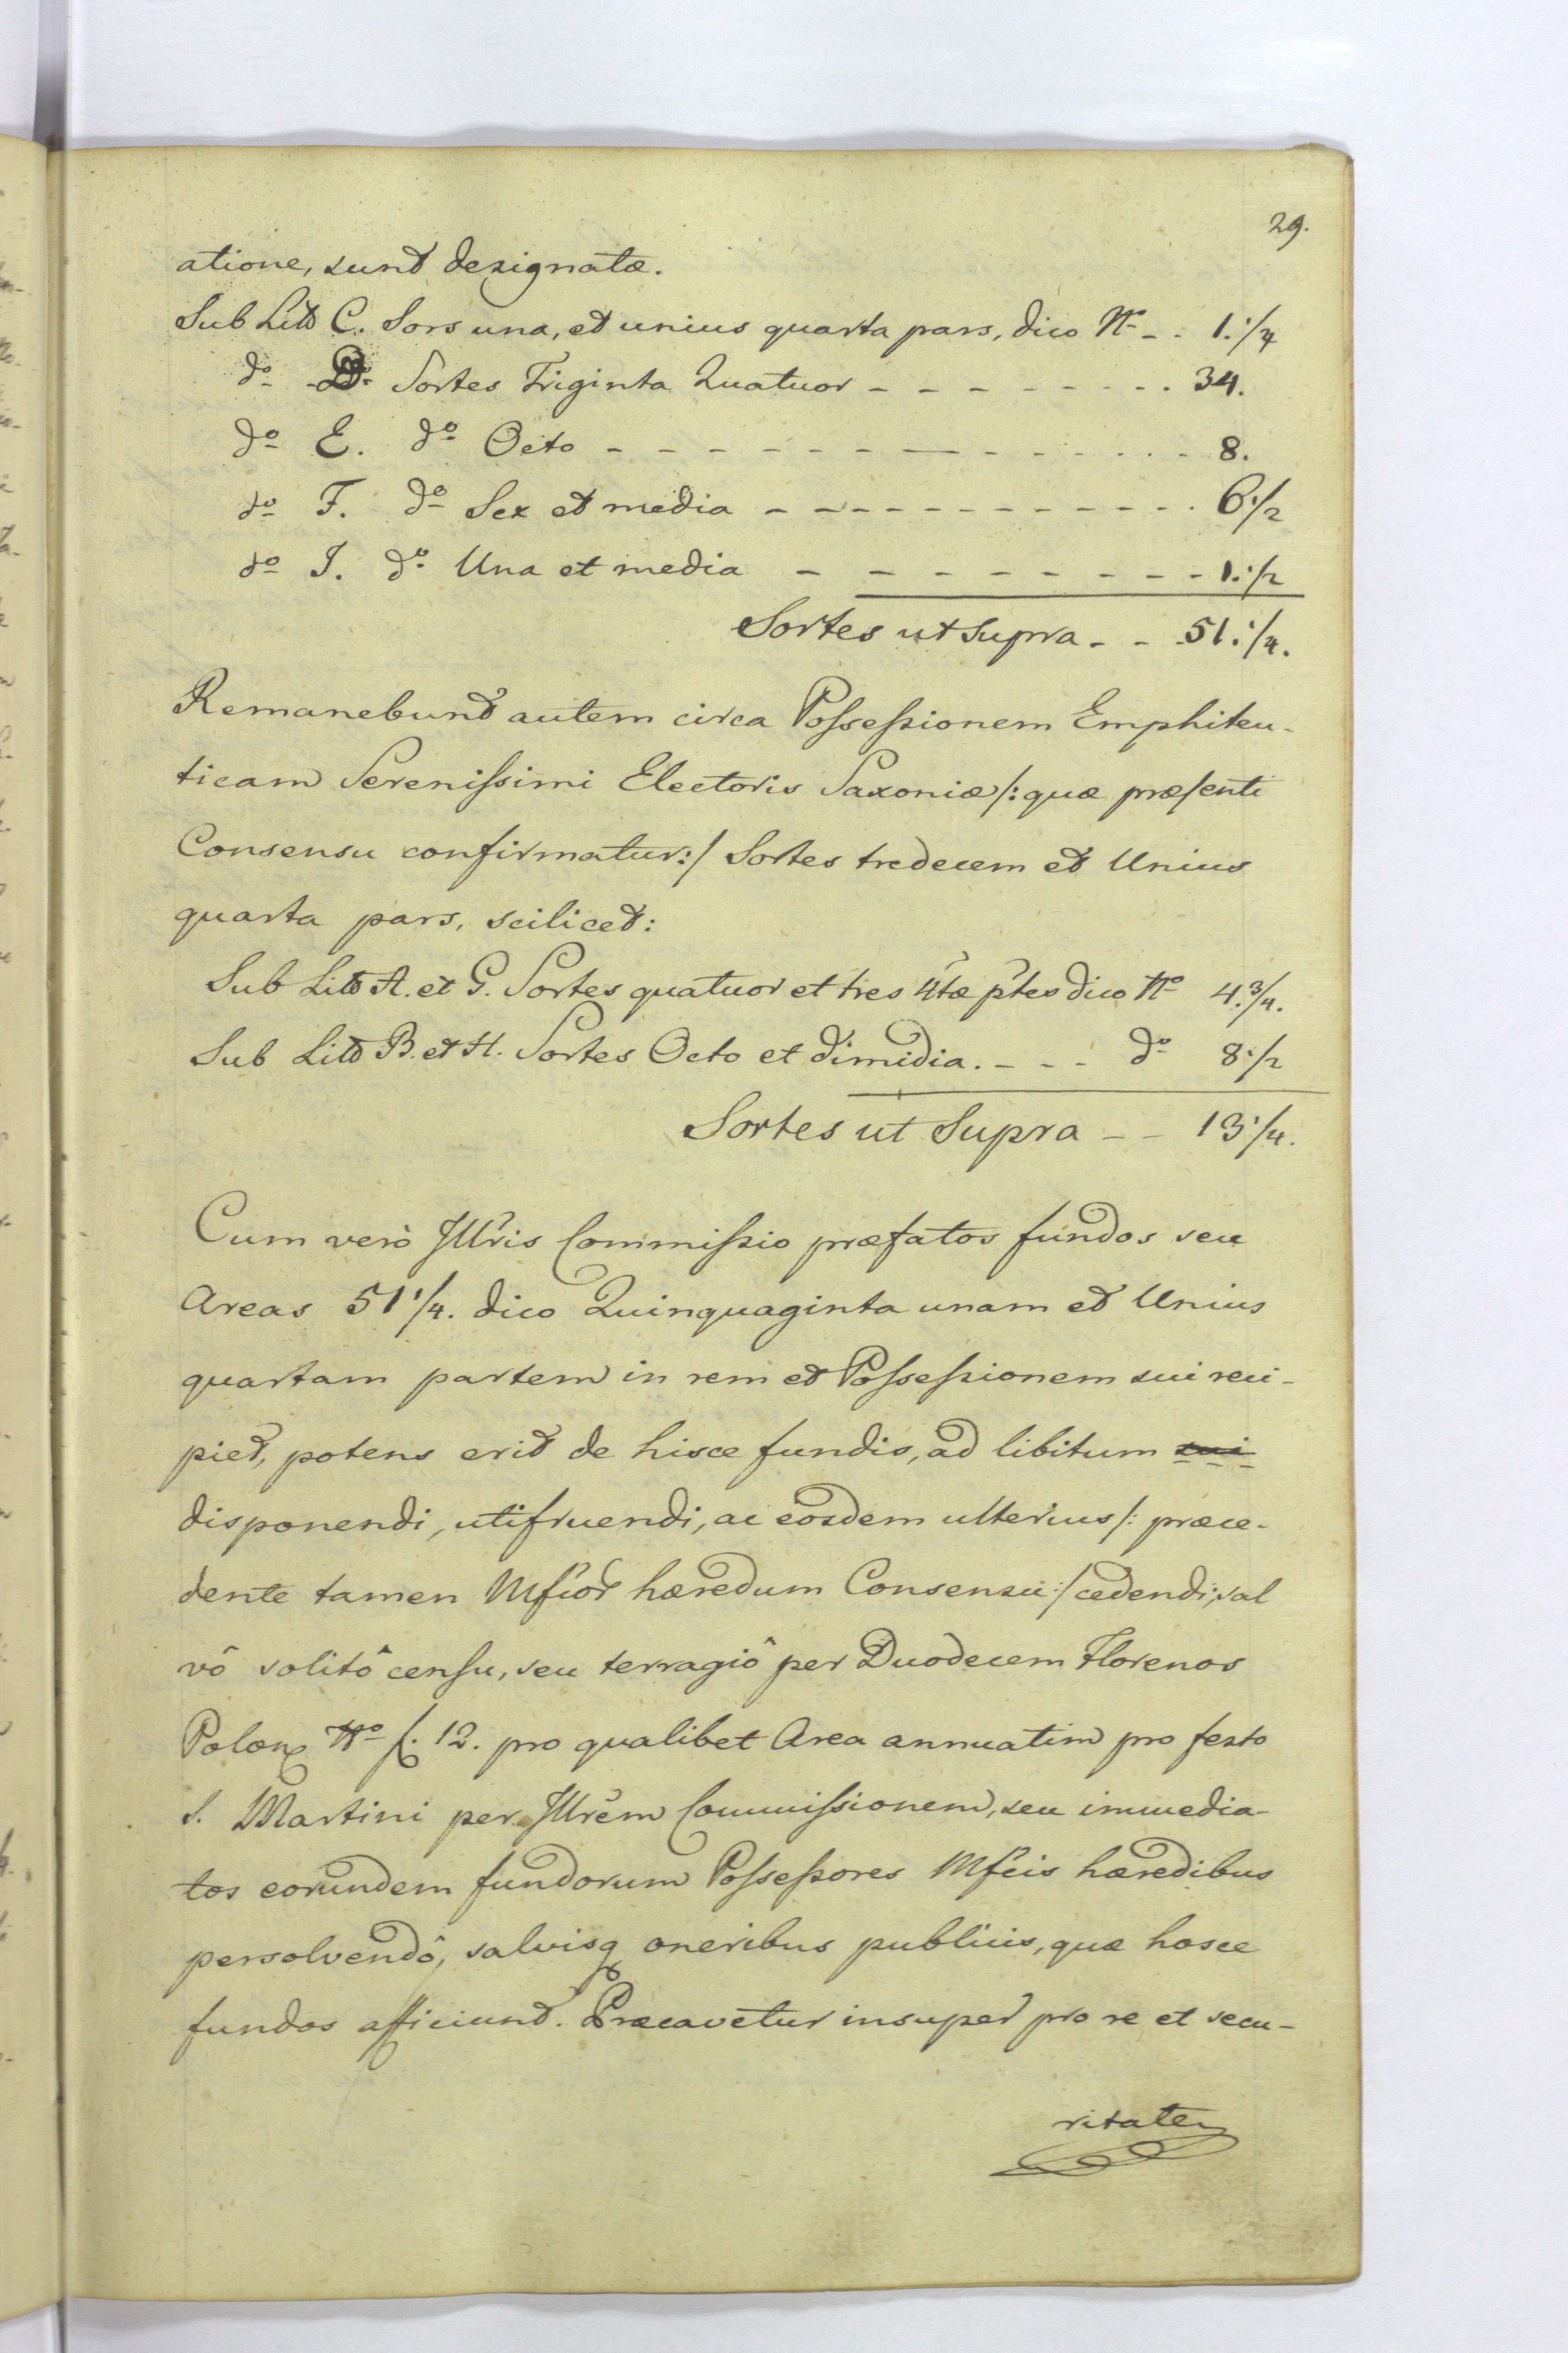 29.
atione, sunt designatæ.
Sub Litt C. Sors una, et unius quarta pars, dico No - - 1.1/4
do - D. Sortes Triginta Quatuor - - - - - - - - . 34.
do E. do Octo - - - - - - - - - - - - . . - 8.
do F. do Sex et media - - - - - - - - - - - . 6.1/2
do I. do Una et media - - - - - - - - - 1.1/2
Sortes ut Supra - - 51.1/4.
Remanebunt autem circa Possessionem Emphiteu-
ticam Serenissimi Electoris Saxoniæ /: quæ præsenti
Consensu confirmatur :/ Sortes tredecem et Unius
quarta pars, scilicet:
Sub Litt A. et G. Sortes quatuor et tres 4tæ ptes dico No 4.3/4.
Sub Litt B. et H. Sortes Octo et dimidia. - - - do 8.1/2
Sortes ut Supra - - 13 1/4.
Cum verò Illris Commissio præfatos fundos seu
Areas 51 1/4. dico Quinquaginta unam et Unius
quartam partem in rem et Possessionem sui reci-
piet, potens erit de hisce fundis, ad libitum sui
disponendi, utifruendi, ac eosdem ulterius /: præce-
dente tamen Mfcor hæredum Consensu :/ cedendi, sal
vô solitô censu, seu terragiô per Duodecem Florenos
Polon No f. 12. pro qualibet Area annuatim pro festo
S. Martini per Illrem Commissionem, seu immedia-
tos eorundem fundorum Possessores Mfcis hæredibus
persolvendô, salvisq oneribus publicis, quæ hosce
fundos afficiunt. Præcavetur insuper pro re et secu-
ritate